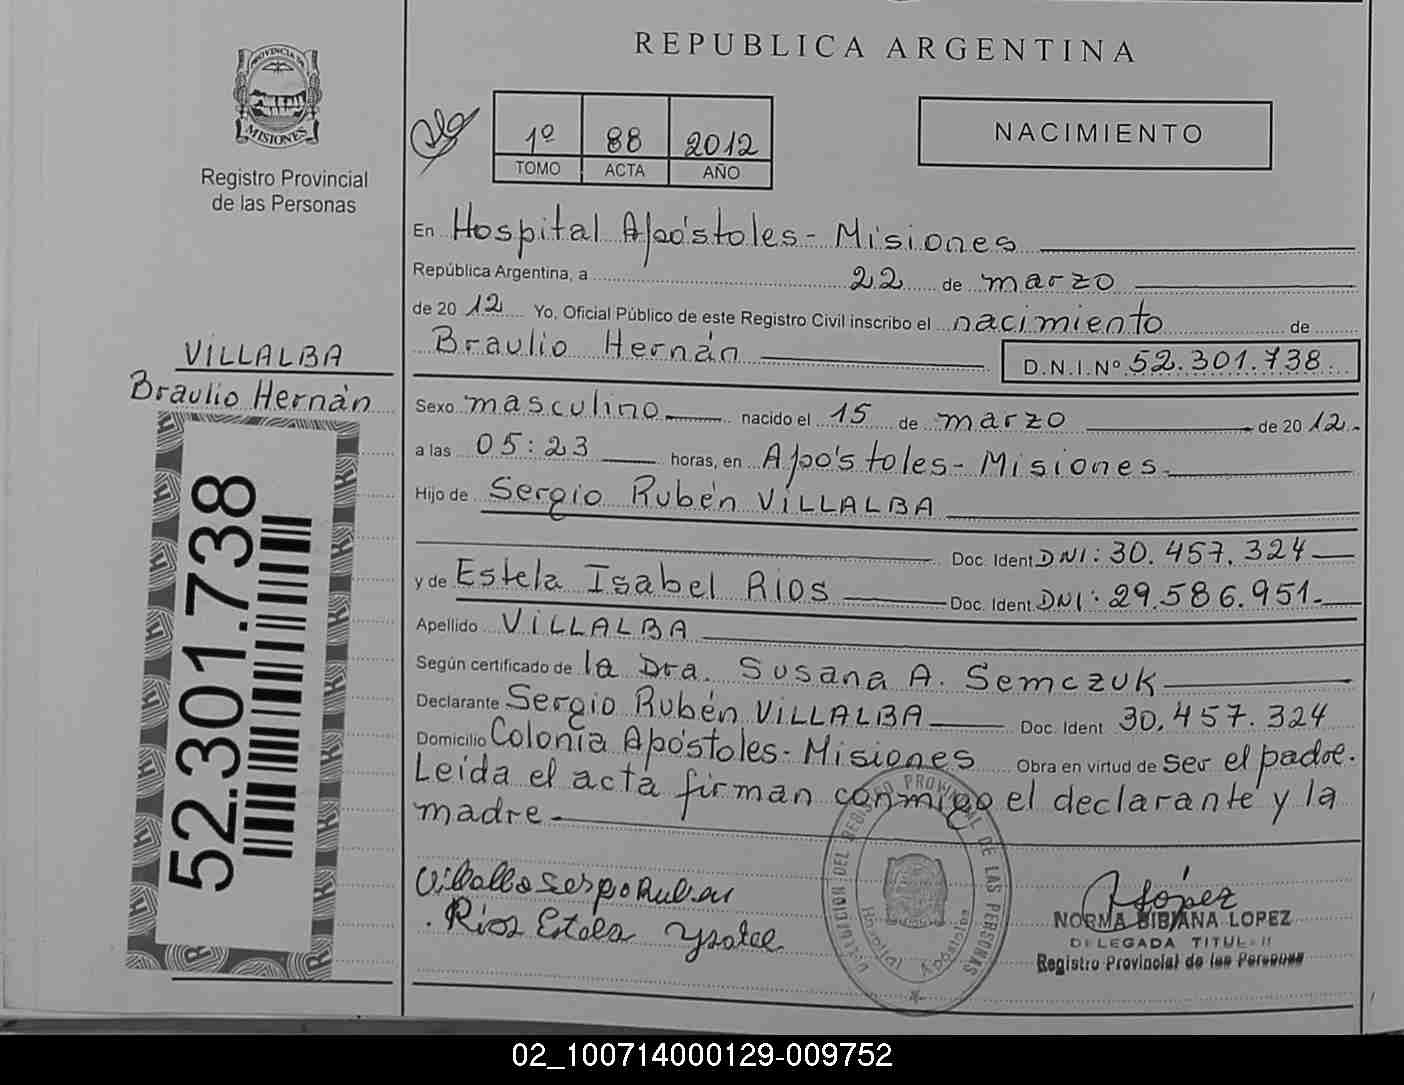 REPUBLICA ARGENTINA
PROVINCIA DE
MISIONES
Registro Provincial
de las Personas
1º 88 2012
TOMO ACTA AÑO
NACIMIENTO
En Hospital Apóstoles - Misiones
República Argentina, a 22 de marzo
de 20 12 Yo, Oficial Público de este Registro Civil inscribo el nacimiento de
Braulio Hernán D.N.I. Nº 52.301.738
VILLALBA
Braulio Hernán
52.301.738
Sexo masculino nacido el 15 de marzo de 20 12.
a las 05:23 horas, en Apóstoles - Misiones.
Hijo de Sergio Rubén VILLALBA
Doc. Ident. DNI: 30.457.324
y de Estela Isabel Rios Doc. Ident. DNI: 29.586.951.
Apellido VILLALBA
Según certificado de la Dra. Susana A. Semczuk
Declarante Sergio Rubén VILLALBA Doc. Ident. 30.457.324
Domicilio Colonia Apóstoles - Misiones Obra en virtud de ser el padre.
Leída el acta firman conmigo el declarante y la
madre.
Rios Estela Ysabel
DEL REGISTRO PROVINCIAL DE LAS PERSONAS
Hospital Apóstoles
López
NORMA BIBIANA LOPEZ
DELEGADA TITULAR
Registro Provincial de las Personas
02_100714000129-009752